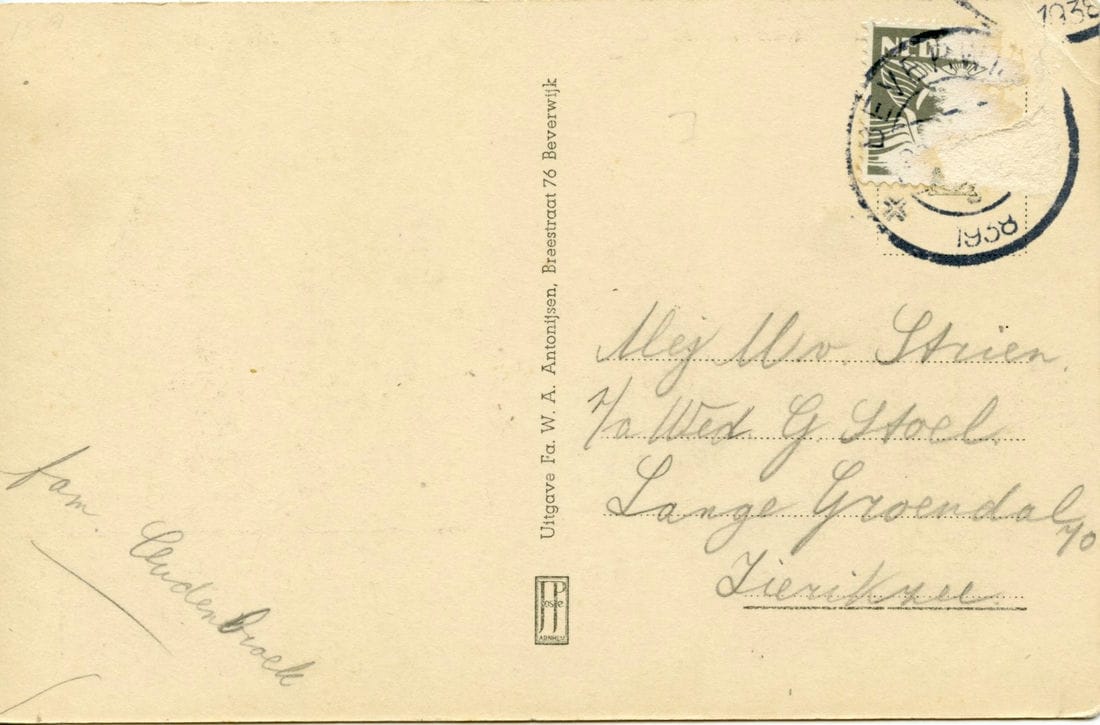 1938
NED
1938
Uitgave Fa. W. A. Antonijsen, Breestraat 76 Beverwijk
Mej M. v. Strien
p/a Wed. G. Stoel.
Lange Groendal
Zierikzee.
fam. Oudenbroek
JP
ARNHEM